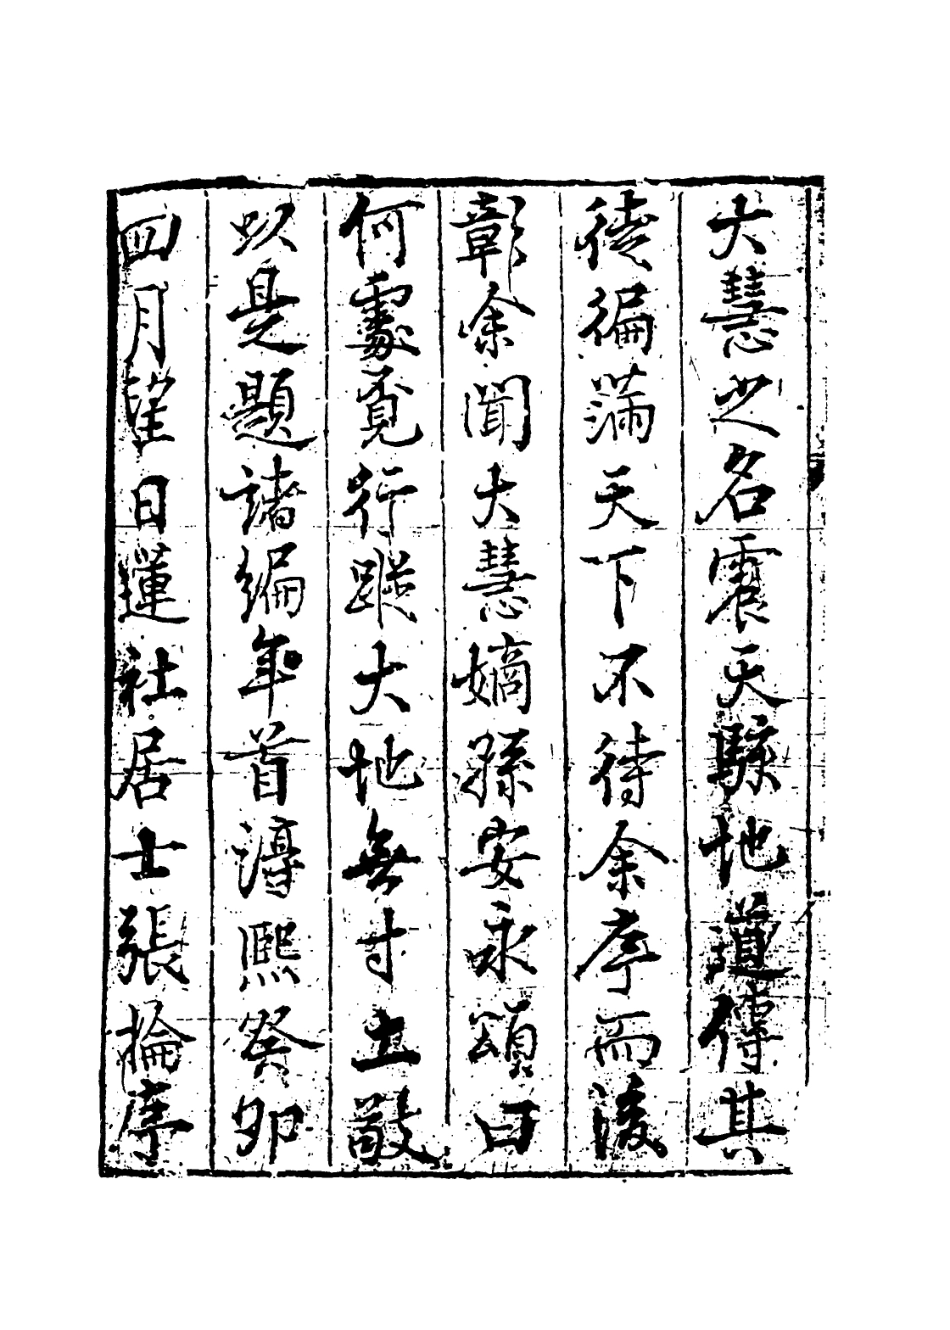 大慧之名震天駭地道傳其
徒徧滿天下不待余序而後
彰余聞大慧嫡孫安永頌曰
何處覓行蹤大地無寸土敢
以是題諸編年首淳熙癸卯
四月望日蓮社居士張掄序